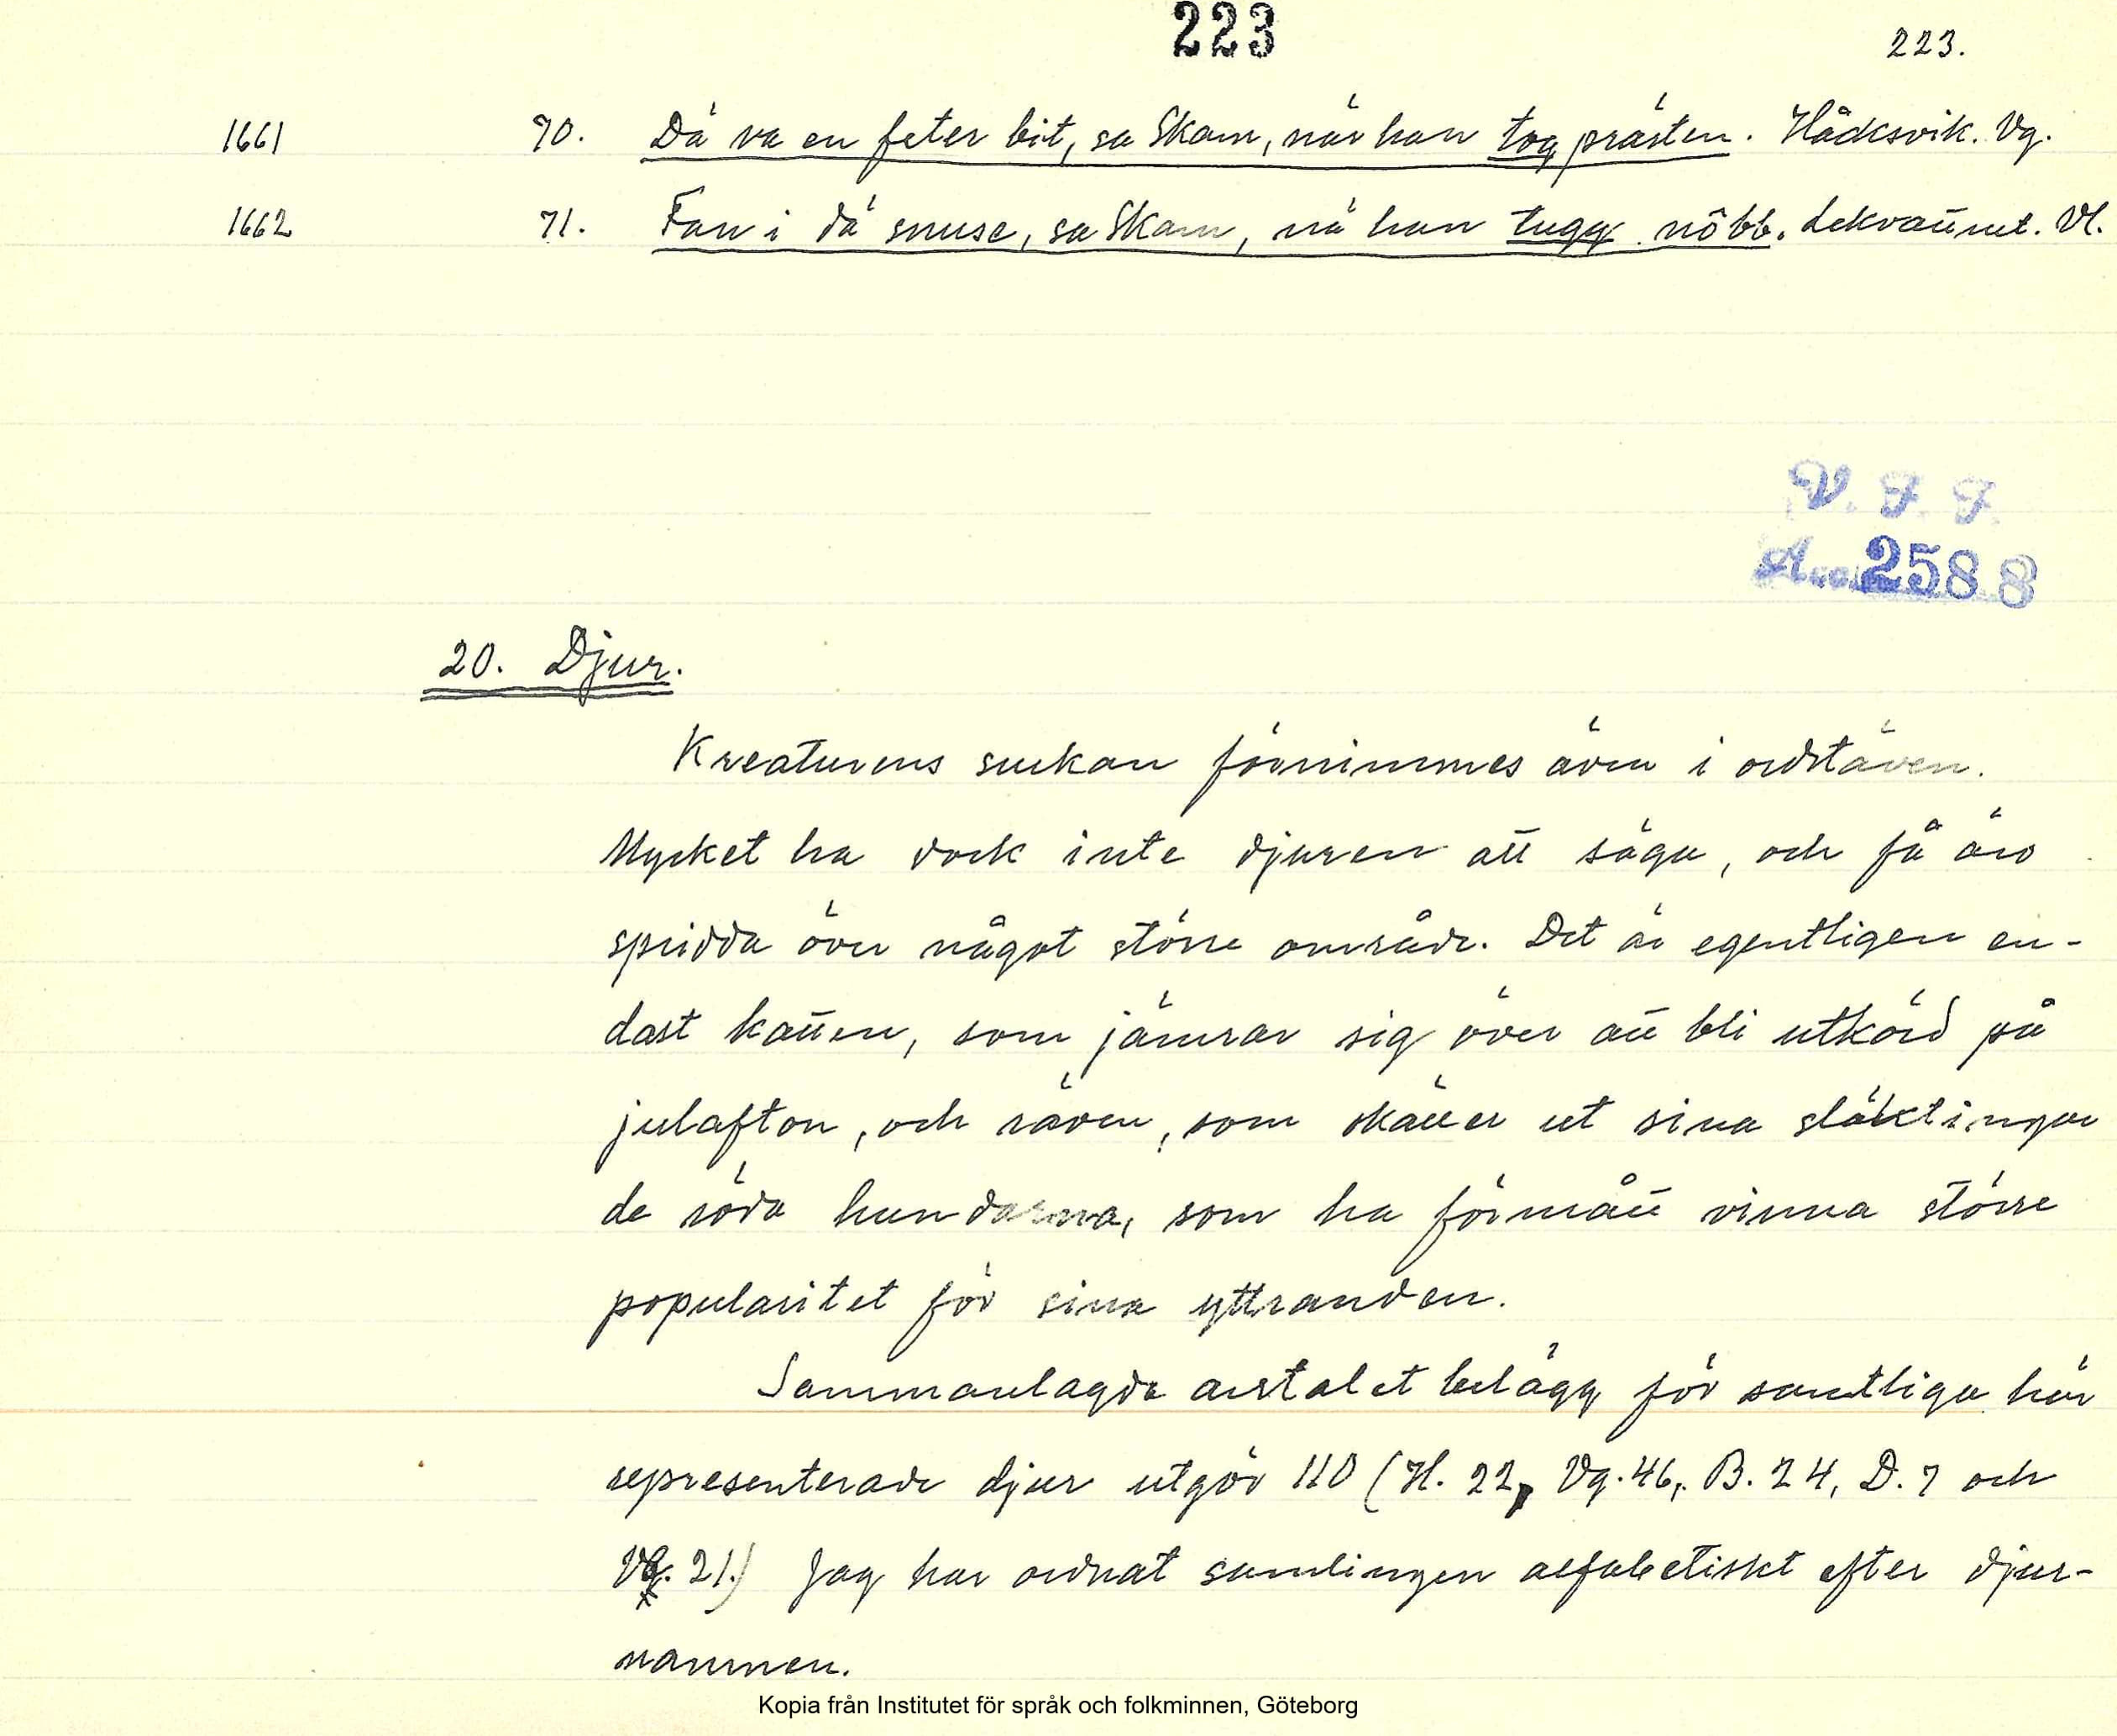 223
223.
1661 70. Dä va en feter bit, sa Skam, när han tog prästen. Håcksvik. Vg.
1662 71. Fan i dä snuse, sa Skam, nä han tugg nöbb. Lekvattnet. Vl.
V. F. F.
2588
20. Djur.
Kreaturens suckan förnimmes även i ordstäven.
Mycket ha dock inte djuren att säga, och få äro
spridda över något större område. Det är egentligen en-
dast katten, som jämrar sig över att bli utkörd på
julafton, och räven, som skäller ut sina släktingar
de röda hundarna, som ha förmått vinna större
popularitet för sina yttranden.
Sammanlagda antalet belägg för samtliga här
representerade djur utgör 110 (H. 22, Vg. 46, B. 24, D. 7 och
21.) Jag har ordnat samlingen alfabetiskt efter djur-
namnen.
Kopia från Institutet för språk och folkminnen, Göteborg